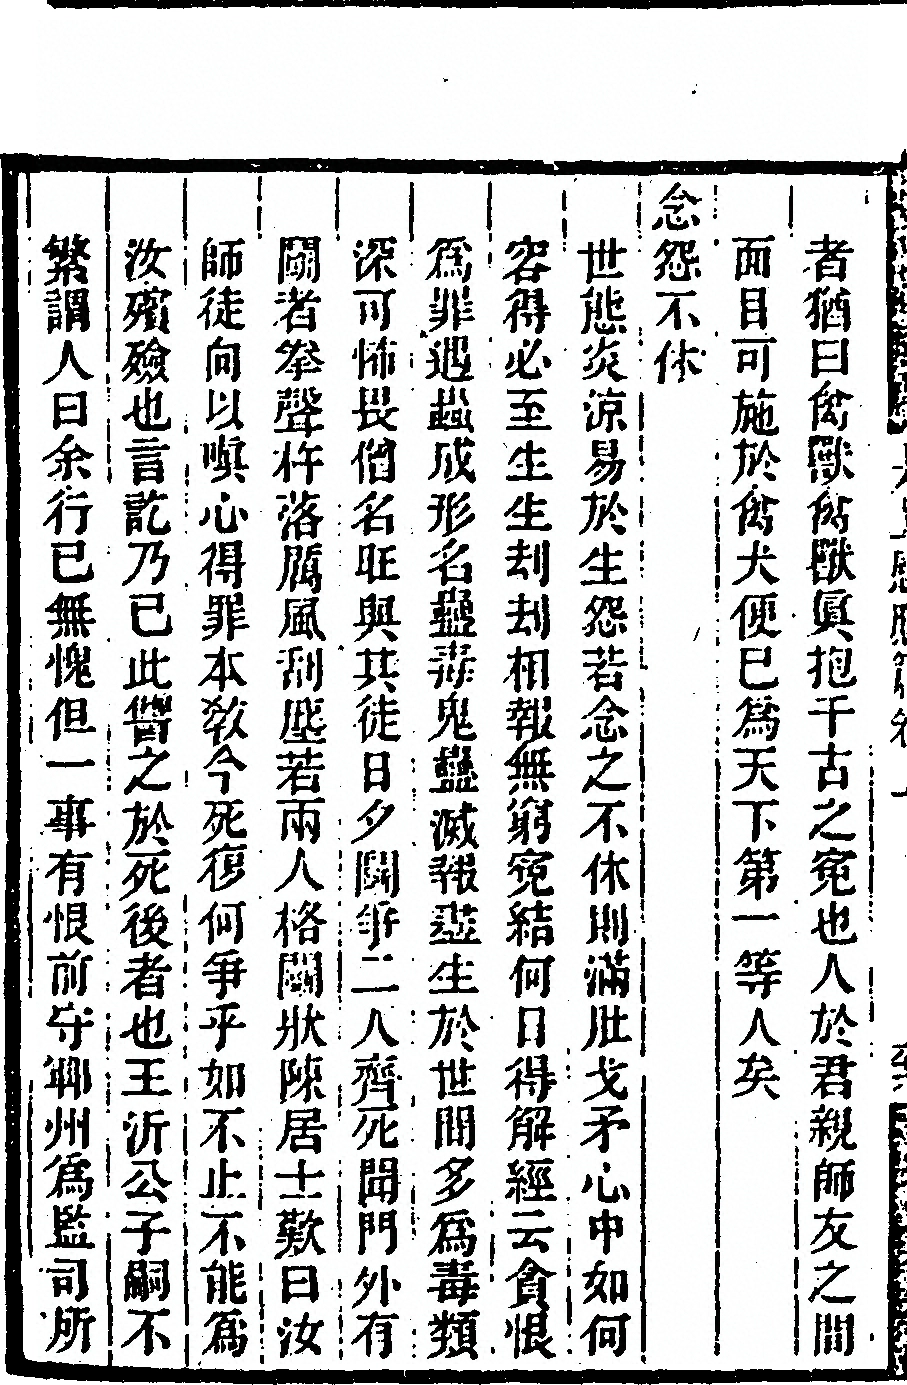 者猶曰禽獸禽獸眞抱千古之寃也人於君親師友之間
面目可施於禽犬便已爲天下第一等人矣
念怨不休
世態炎涼易於生怨若念之不休則滿肚戈矛心中如何
容得必至生生刦刦相報無窮寃結何日得解經云貪恨
爲罪過蟲成形名蠱毒鬼蠱滅報盡生於世間多爲毒類
深可怖畏僧名旺與其徒日夕鬭爭二人齊死聞門外有
鬭者拳聲杵落厲風刮塵若兩人格鬭狀陳居士歎曰汝
師徒向以嗔心得罪本敎今死復何爭乎如不止不能爲
汝殯殮也言訖乃已此讐之於死後者也王沂公子嗣不
繁謂人曰余行已無愧但一事有恨前守鄆州爲監司所